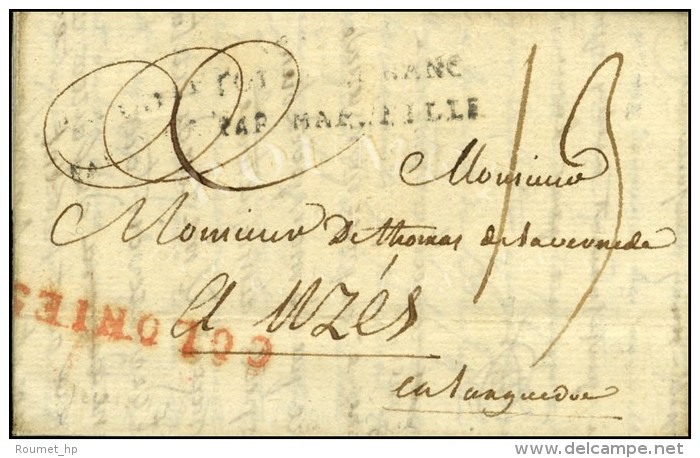 FRANC
PAR MARSEILLE
13
Monsieur
Monsieur De thomas de lavernede
A uzés
COLONIES
en languedoc
Roumet_hp
delcampe.net